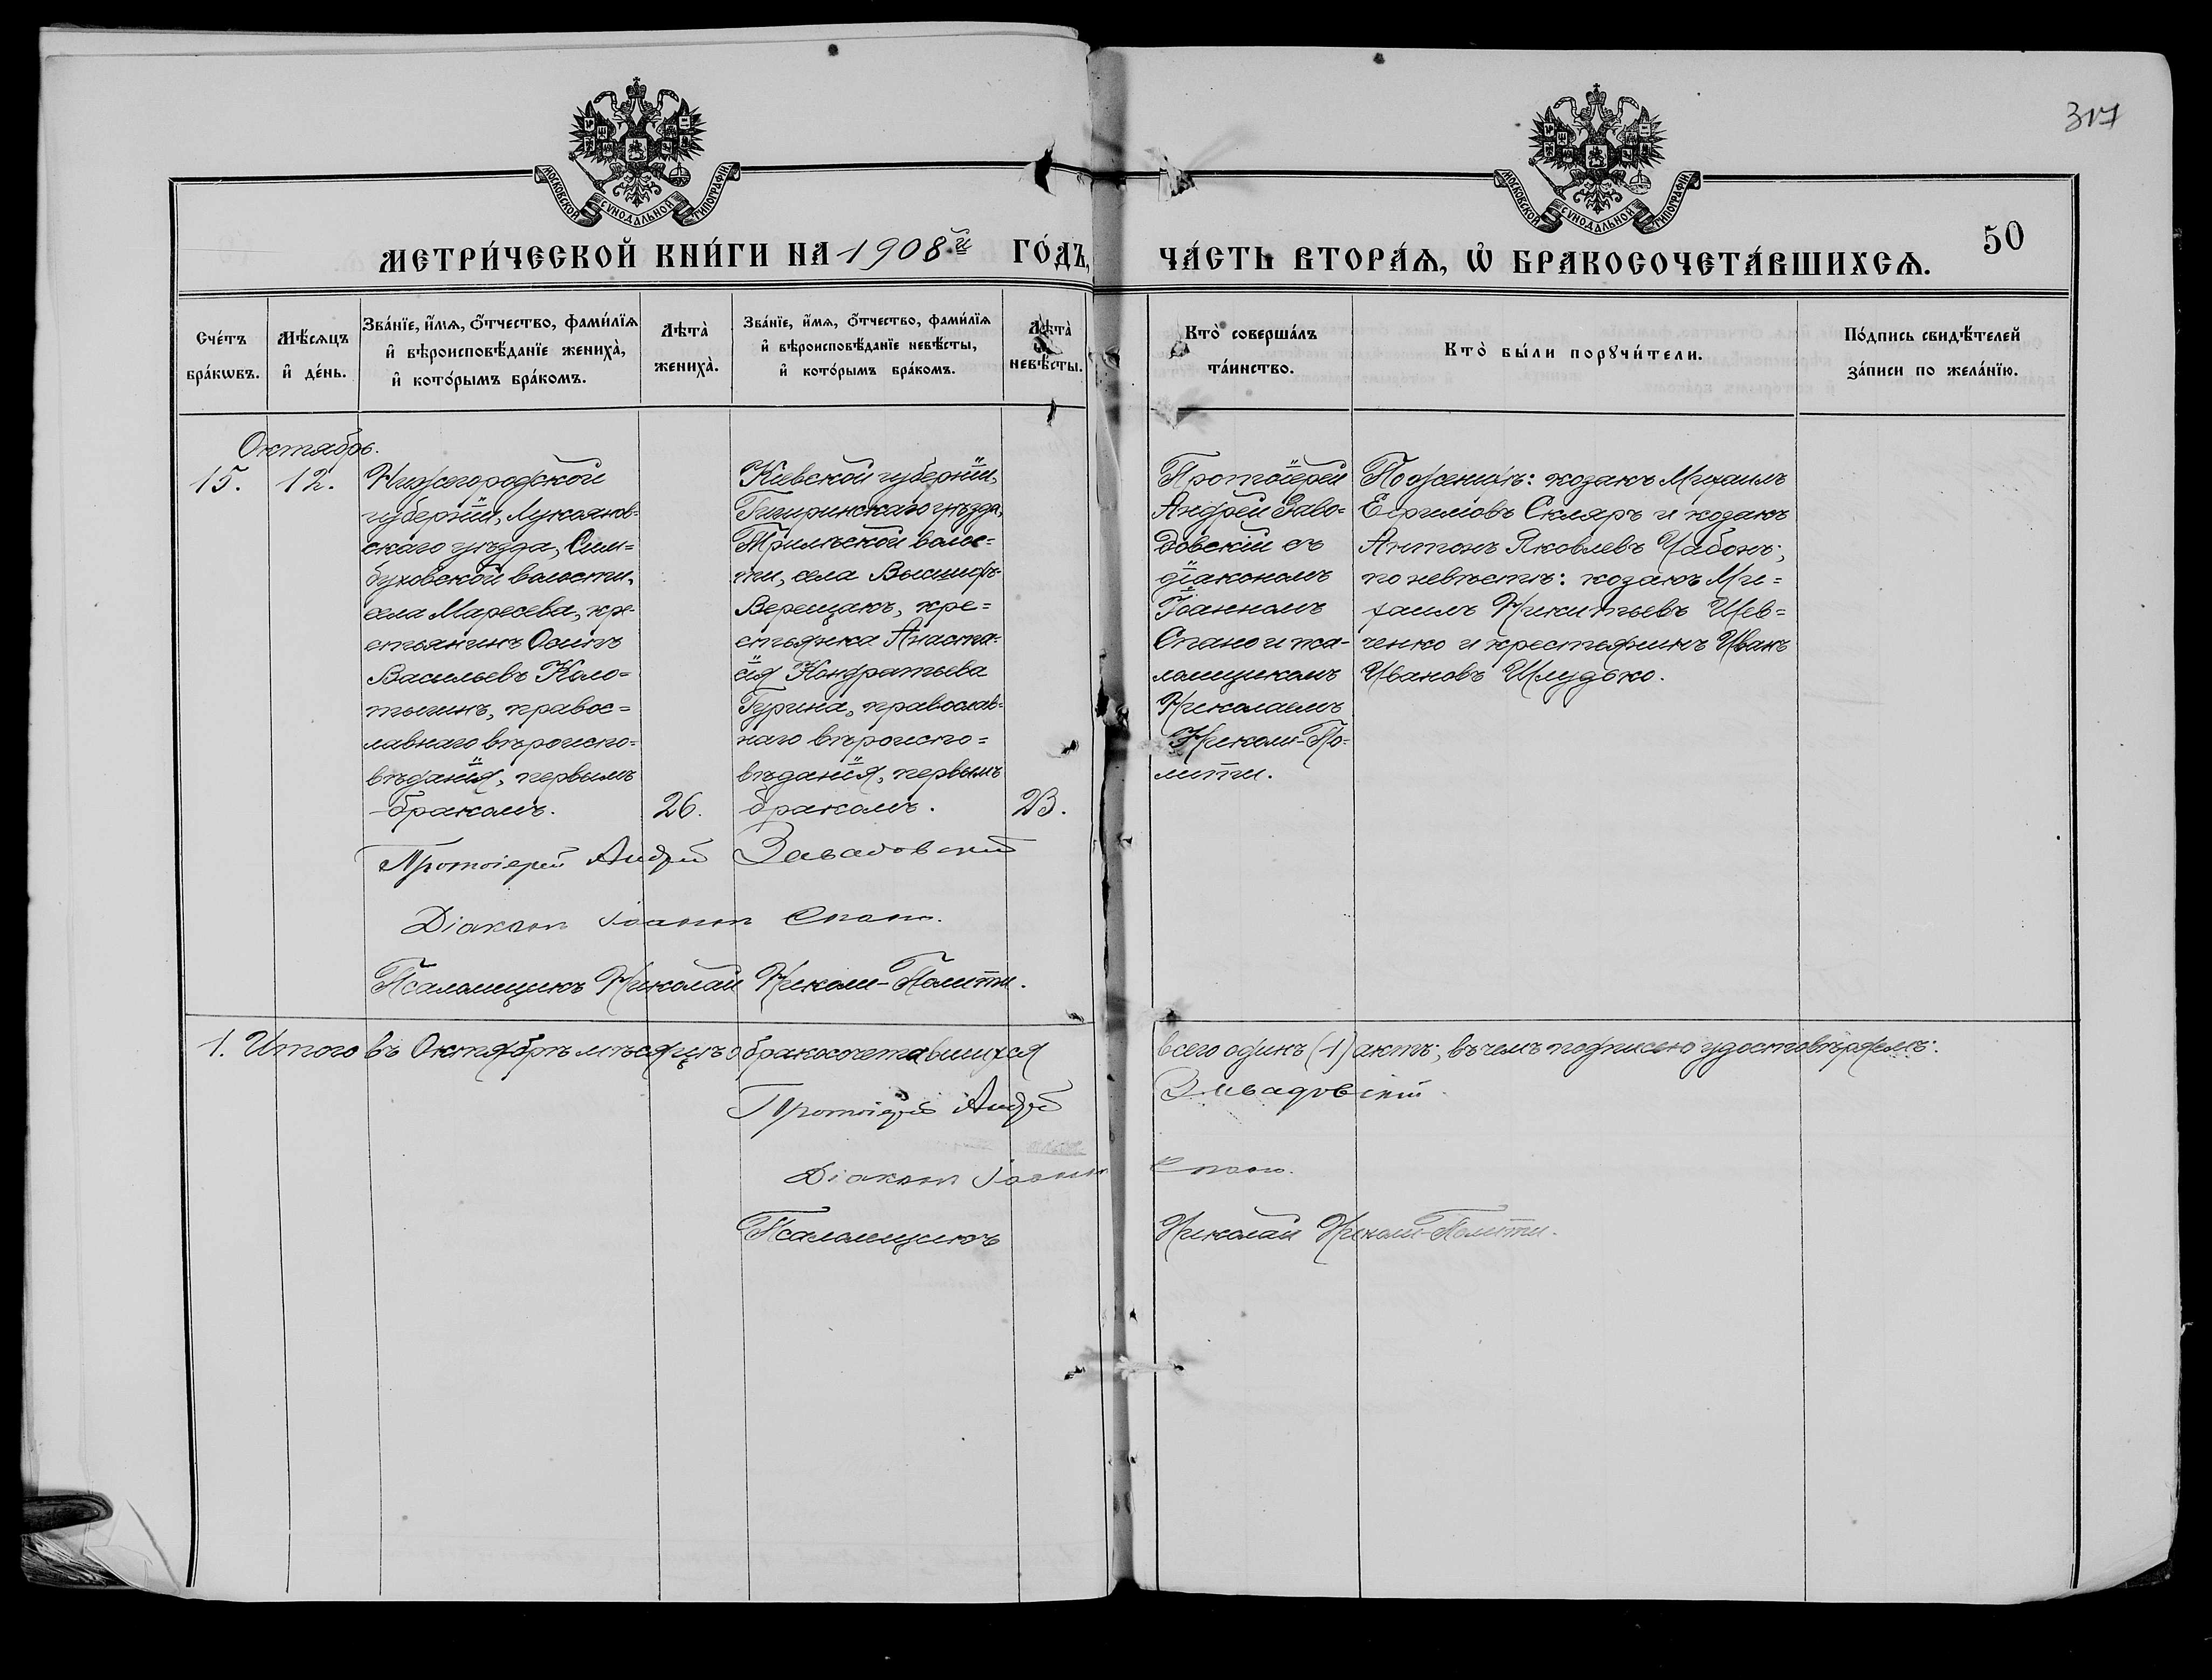 317
МОСКОВСКОЙ СѴНОДАЛЬНОЙ ТИПОГРАФІИ.
МОСКОВСКОЙ СѴНОДАЛЬНОЙ ТИПОГРАФІИ.
50
МЕТРИ́ЧЕСКОЙ КНИ́ГИ НА 1908й ГО́ДЪ,
ЧА́СТЬ ВТОРА́Ѧ, Ѽ БРАКОСОЧЕТА́ВШИХСѦ.
Сче́тъ
бра́кѡвъ.
Мѣ́сѧцъ
и҆ де́нь.
Зва́нїе, и҆́мѧ, ѻ҆́тчество, фами́лїѧ
и҆ вѣроисповѣ́данїе жениха̀,
и҆ кото́рымъ бра́комъ.
Лѣта̀
жениха̀.
Зва́нїе, и҆́мѧ, ѻ҆́тчество, фами́лїѧ
и҆ вѣроисповѣ́данїе невѣ́сты,
и҆ кото́рымъ бра́комъ.
Лѣта̀
невѣ́сты.
Кто̀ соверша́лъ
та́инство.
Кто̀ бы́ли порꙋчи́тели.
По́дпись свидѣ́телей
за́писи по жела́нїю.
Октябрь.
15.
12.
Нижегородской
губерніи, Лукоянов-
скаго уѣзда, Сим=
буховской волости,
села Маресева, кре-
стьянинъ Осипъ
Васильевъ Коло=
тыгинъ, правос=
лавнаго вѣроиспо-
вѣданія, первымъ
бракомъ.
26.
Кіевской губерніи,
Чигиринскаго уѣзда,
Трилѣской волос-
ти, села Высшихъ-
Верещакъ, кре=
стьянка Анаста-
сія Кондратьева
Гурина, православ-
наго вѣроиспо=
вѣданія, первымъ
бракомъ.
23.
Протоіерей
Андрей Заво-
довскій съ
діакономъ
Іоанномъ
Спано и пса-
ломщикомъ
Николаемъ
Николи-По-
литти.
По женихѣ: козакъ Михаилъ
Ефимовъ Скляръ и козакъ
Антонъ Яковлевъ Чабонъ;
по невѣстѣ: козакъ Ми=
хаилъ Никитьевъ Шев=
ченко и крестьянинъ Иванъ
Ивановъ Шлудько.
Протоіерей Андрей Завадовскій
Діаконъ Іоаннъ Спано.
Псаломщикъ Николай Николи-Политти.
1. Итого въ Октябрѣ мѣсяцѣ о бракосочетавшихся всего одинъ (1) актъ, въ чемъ подписью удостовѣряемъ:
Протоіерей Андрей Завадовскій
Діаконъ Іоаннъ Спано.
Псаломщикъ Николай Николи-Политти.